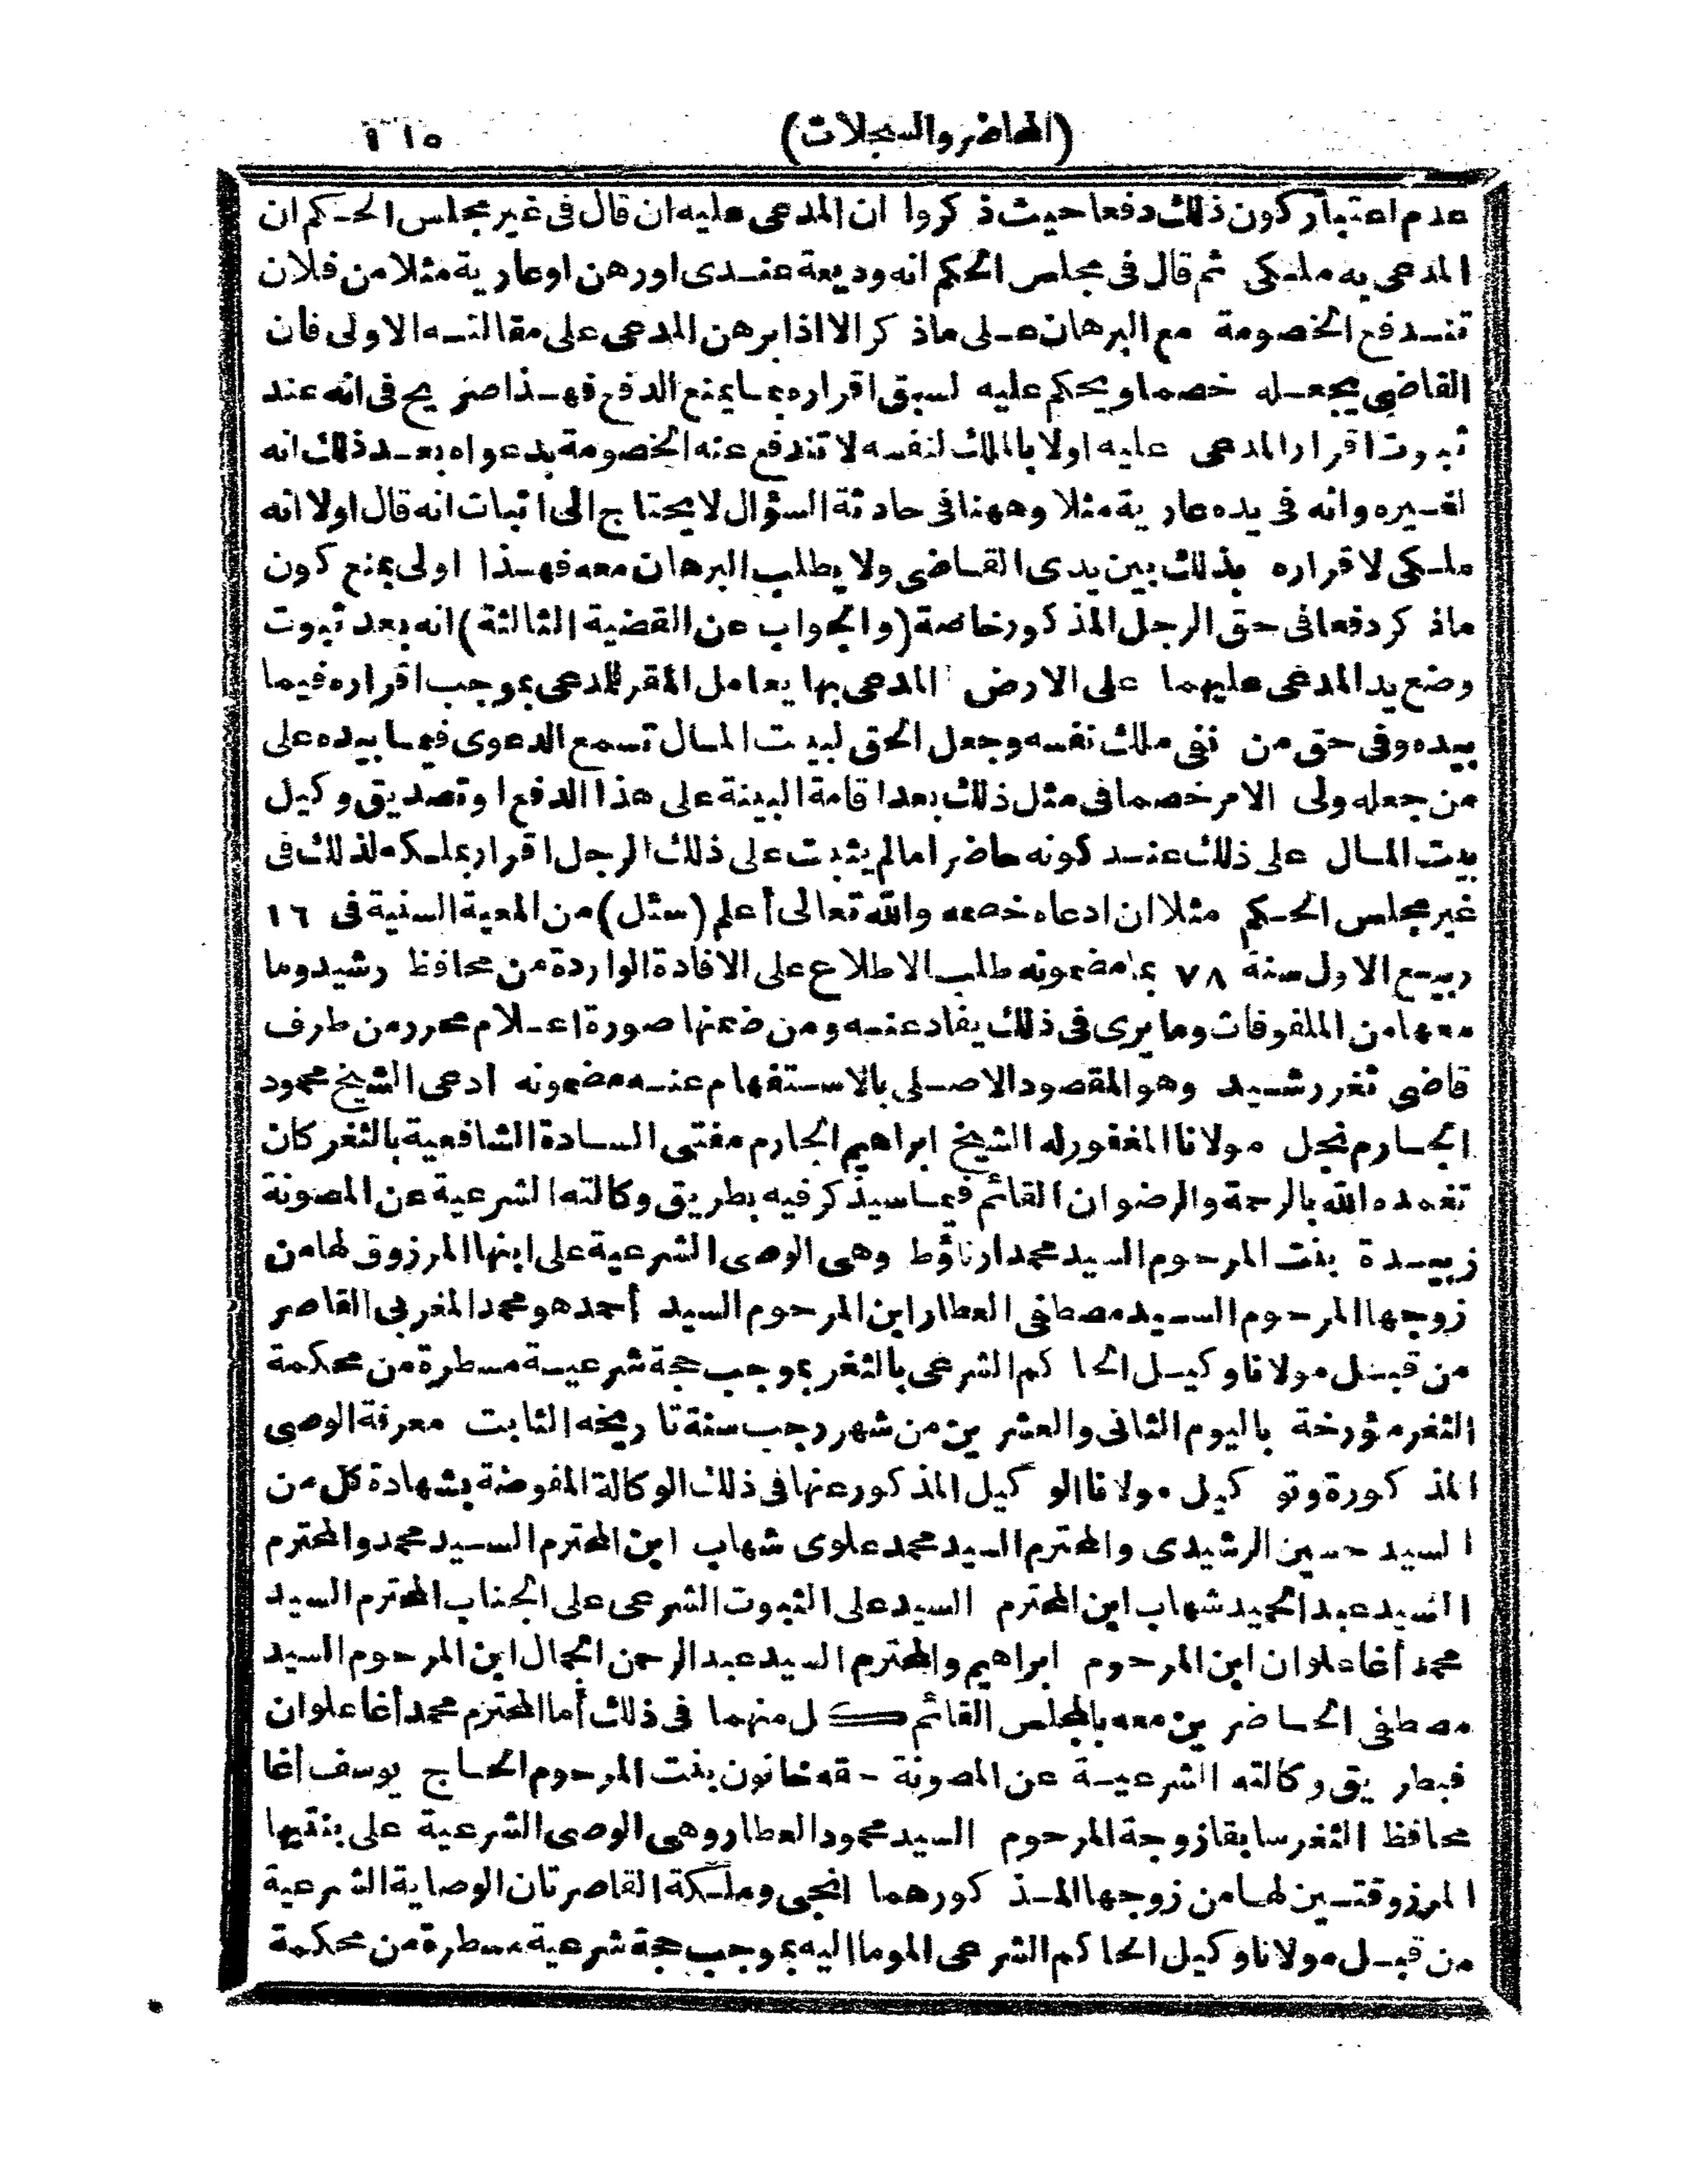 (المحاضر والسجلات)
عدم اعتبار كون ذلك دفعا حيث ذكروا ان المدعى عليه ان قال فى غير مجلس الحكم ان
المدعى به ملكى ثم قال فى مجلس الحكم انه وديعة عندى اورهن اوعارية مثلا من فلان
تندفع الخصومة مع البرهان على ماذكر الا اذا برهن المدعى على مقالته الاولى فان
القاضى يجعله خصما ويحكم عليه لسبق اقراره بما يمنع الدفع فهذا صريح فى انه عند
ثبوت اقرار المدعى عليه اولا بالملك لنفسه لا تندفع عنه الخصومة بدعواه بعد ذلك انه
لغيره وانه فى يده عارية مثلا وههنا فى حادثة السؤال لا يحتاج الى اثبات انه قال اولا انه
ملكى لاقراره بذلك بين يدى القاضى ولا يطلب البرهان معه فهذا اولى بمنع كون
ماذكر دفعا فى حق الرجل المذكور خاصة (والجواب عن القضية الثالثة) انه بعد ثبوت
وضع يد المدعى عليهما على الارض المدعى بها يعامل المقر للمدعى بموجب اقراره فيما
بيده وفى حق من نفى ملك نفسه وجعل الحق لبيت المال تسمع الدعوى فيما بيده على
من جعله ولى الامر خصما فى مثل ذلك بعد اقامة البينة على هذا الدفع او تصديق وكيل
بيت المال على ذلك عند كونه حاضرا مالم يثبت على ذلك الرجل اقرار بملكه لذلك فى
غير مجلس الحكم مثلا ان ادعاه خصمه والله تعالى أعلم (سئل) من المعية السنية فى ١٦
ربيع الاول سنة ٧٨ بما مضمونه طلب الاطلاع على الافادة الواردة من محافظ رشيد وما
معها من الملفوفات وما يرى فى ذلك يفاد عنه ومن ضمنها صورة اعلام محرر من طرف
قاضى ثغر رشيد وهو المقصود الاصلى بالاستفهام عنه مضمونه ادعى الشيخ محمود
الجارم نجل مولانا المغفور له الشيخ ابراهيم الجارم مفتى السادة الشافعية بالثغر كان
تغمده الله بالرحمة والرضوان القائم فيما سيذكر فيه بطريق وكالته الشرعية عن المصونة
زبيدة بنت المرحوم السيد محمد ارناؤط وهى الوصى الشرعية على ابنها المرزوق لها من
زوجها المرحوم السيد مصطفى العطار ابن المرحوم السيد أحمد هو محمد المغربى القاصر
من قبل مولانا وكيل الحاكم الشرعى بالثغر بموجب حجة شرعية مسطرة من محكمة
الثغر مؤرخة باليوم الثانى والعشرين من شهر رجب سنة تاريخه الثابت معرفة الوصى
المذكورة وتوكيل مولانا الوكيل المذكور عنها فى ذلك الوكالة المفوضة بشهادة كل من
السيد حسين الرشيدى والمحترم السيد محمد علوى شهاب ابن المحترم السيد محمد والمحترم
السيد عبد الحميد شهاب ابن المحترم السيد على الثبوت الشرعى على الجناب المحترم السيد
محمد أغا علوان ابن المرحوم ابراهيم والمحترم السيد عبد الرحمن الجمال ابن المرحوم السيد
مصطفى الحاضرين معه بالمجلس القائم كل منهما فى ذلك أما المحترم محمد أغا علوان
فبطريق وكالته الشرعية عن المصونة خانون بنت المرحوم الحاج يوسف أغا
محافظ الثغر سابقا زوجة المرحوم السيد محمود العطار وهى الوصى الشرعية على بنتيها
المرزوقتين لها من زوجها المذكور هما انجى وملكة القاصرتان الوصاية الشرعية
من قبل مولانا وكيل الحاكم الشرعى الموما اليه بموجب حجة شرعية مسطرة من محكمة